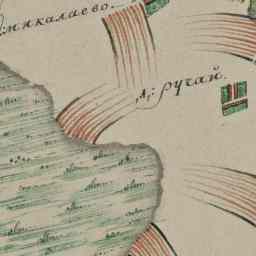 микалаево.
А: ручай.